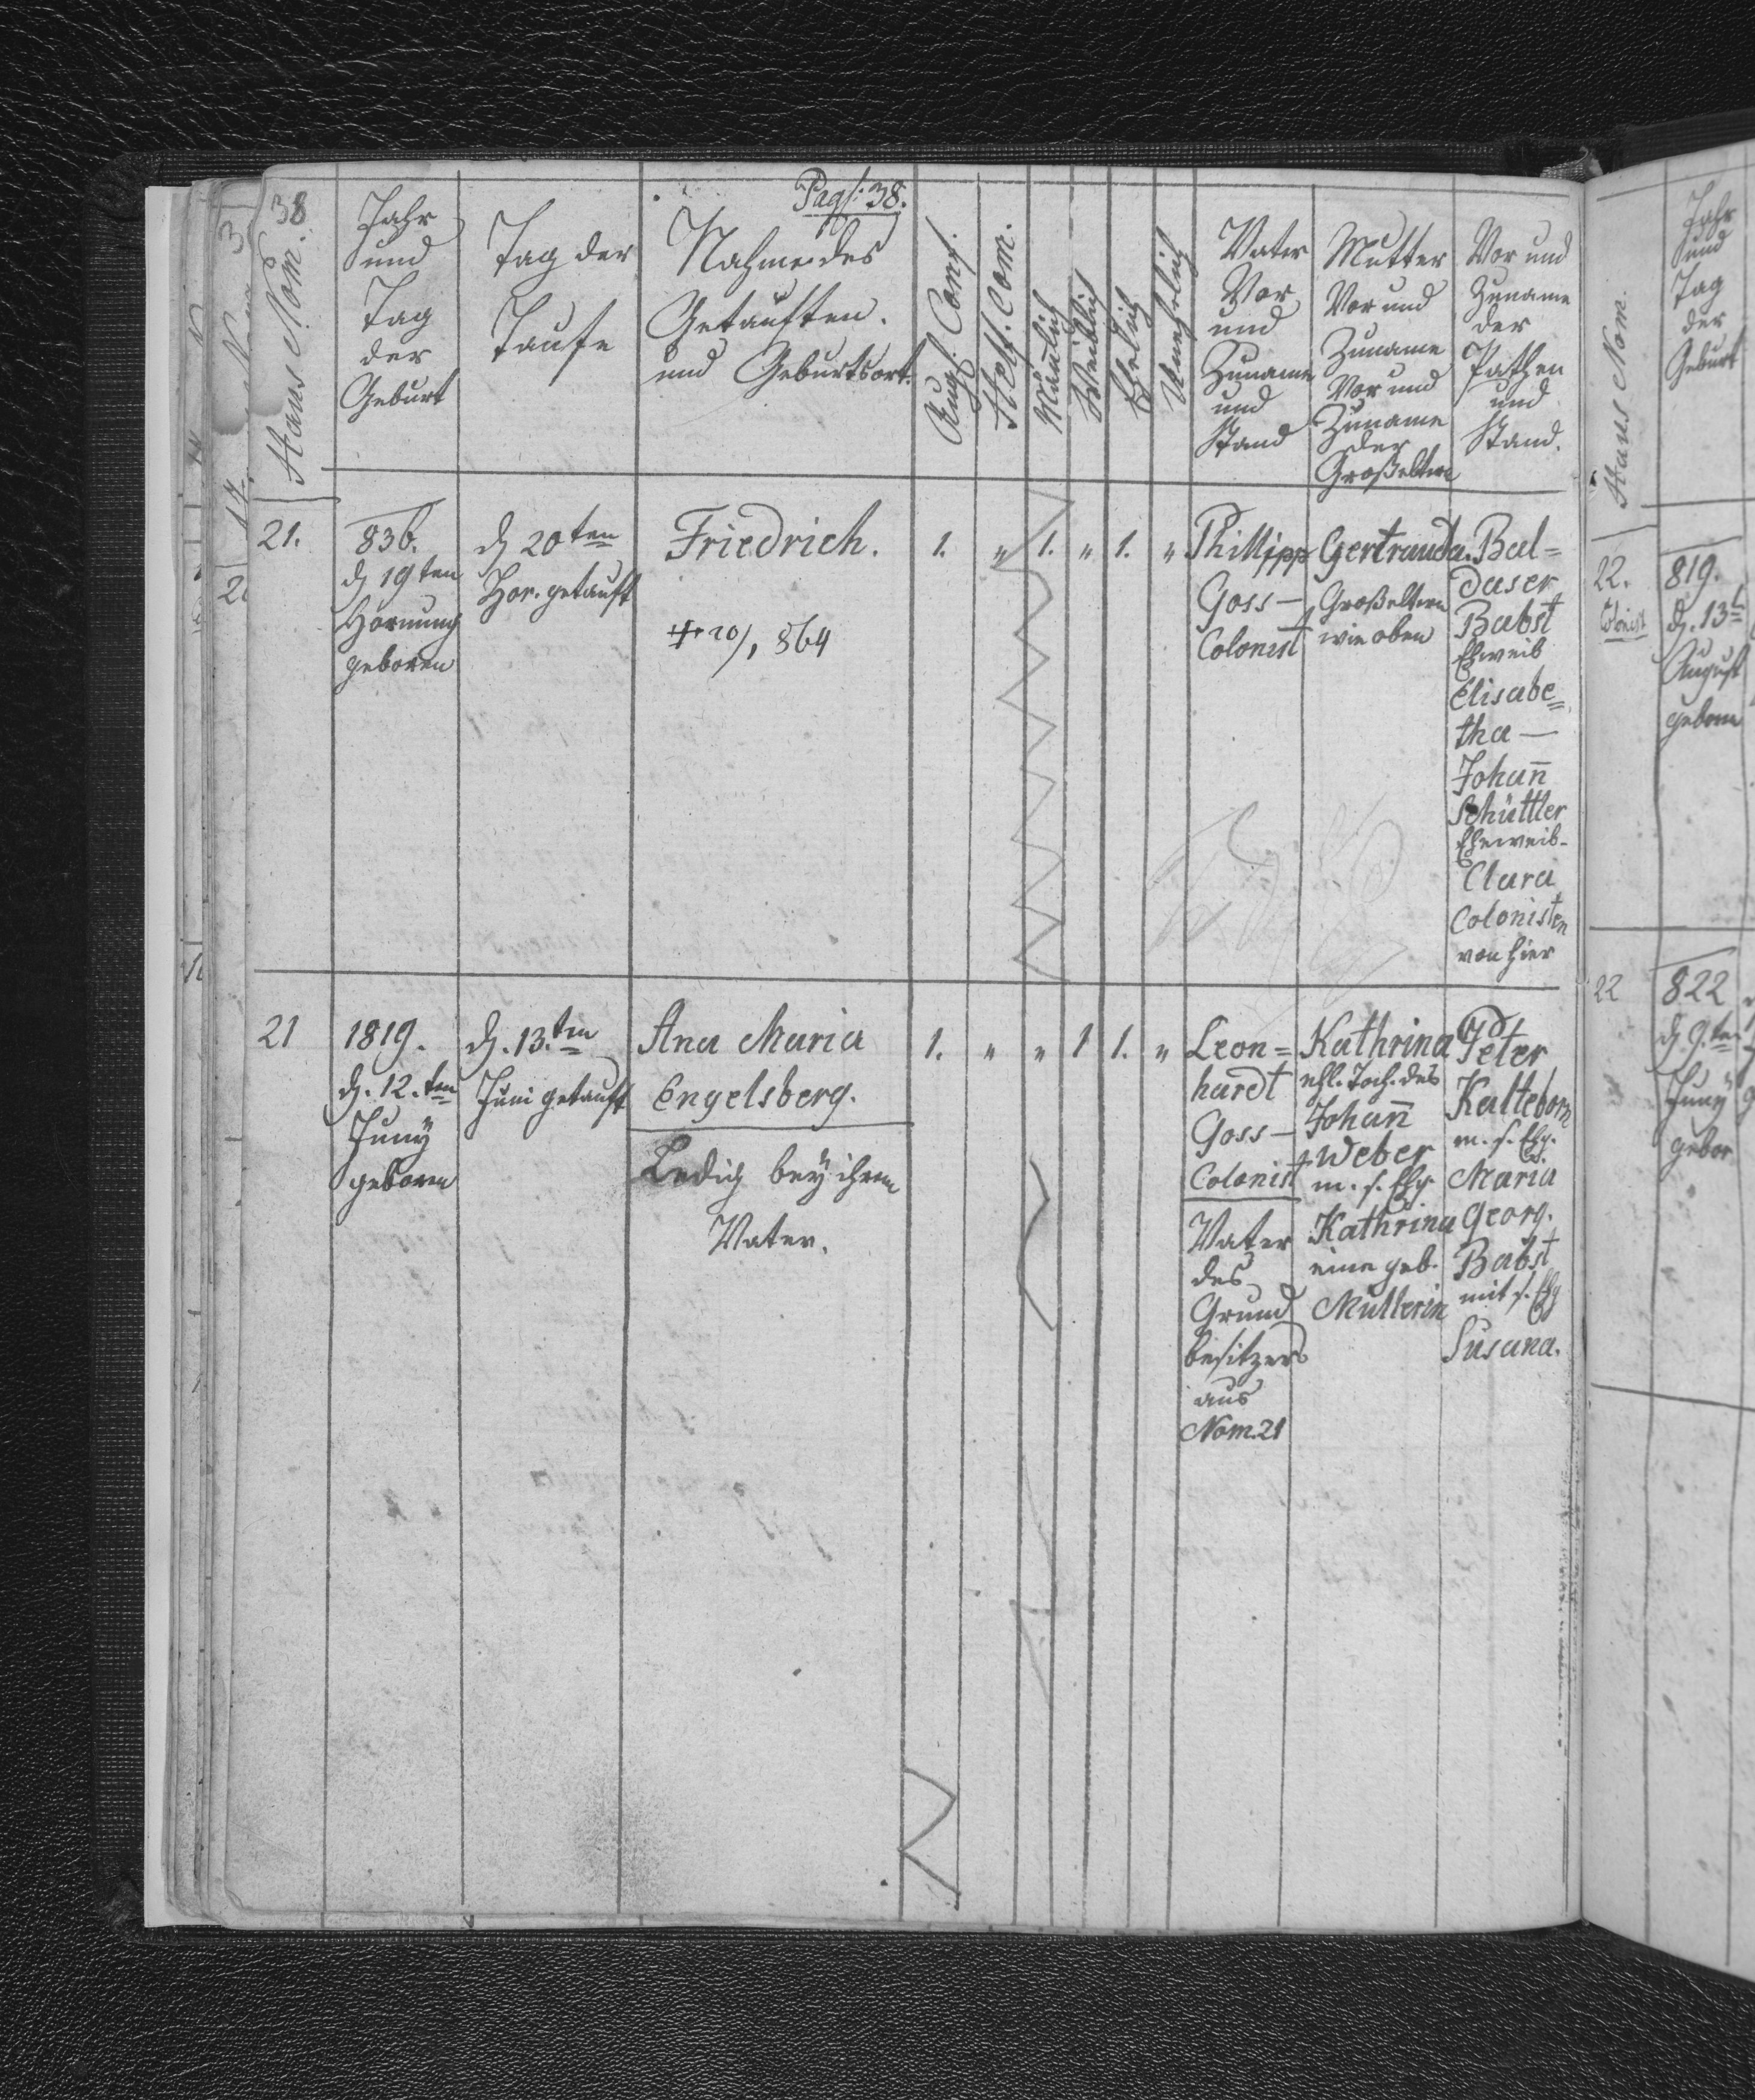 38
Pag: 38.
Haus Nom.
Jahr
und
Tag
der
Geburt
Tag der
Taufe
Nahme des
Getauften.
und Geburtsort.
Augs. Conf.
Helf. Com.
Mänlich
Weiblich
Ehelich
Unehelich
Vater
Vor
und
Zuname
und
Stand
Mutter
Vor und
Zuname
Vor und
Zuname
der
Großeltern
Vor und
Zuname
der
Pathen
und
Stand.
21.
836.
d. 19ten
Hornung
geboren
d. 20ten
Hor. getauft
Friedrich.
+ 20/1 864
1. " 1. " 1. "
Phillipp
Goss —
Colonist
Gertrauda.
Großeltern
wie oben
Bal=
daser
Babst
Eheweib
Elisabe=
tha —
Johañ
Schüttler
Eheweib-
Clara
Colonisten
von hier
21
1819.
d. 12.ten
Juny
geboren
d. 13.ten
Juni getauft
Ana Maria
Engelsberg.
Ledig bey ihrem
Vater.
1. " " 1 1. "
Leon=
hardt
Goss —
Colonist
Vater
des
Grund
besitzers
aus
Nom. 21
Kathrina
ehl. Toch. des
Johañ
Weber
m. s. Ehg.
Kathrina
eine geb.
Müllerin
Peter
Kalteborn
m. s. Ehg.
Maria
Georg.
Babst
mit s. Ehg
Susana.
Haus Nom.
Jahr
und
Tag
der
Geburt
22.
Colonist
819.
d. 13t
August
geboren
22
822
d. 9.ten
Juny
gebor